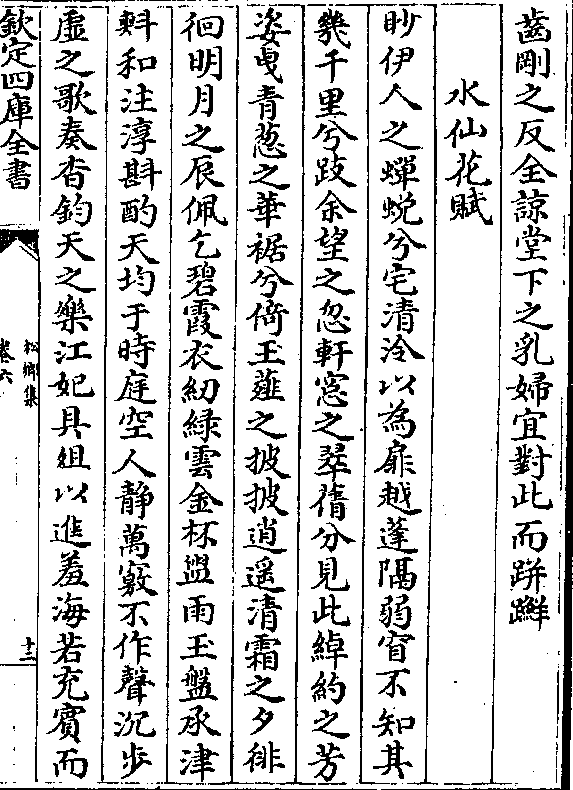 齒剛之反全諒堂下之乳婦宜對此而跰𨇤
水仙花賦
眇伊人之蟬蛻兮宅清泠以為扉越蓬隔弱窅不知其
幾千里兮跂余望之忽軒窓之翠倩兮見此綽約之芳
姿曵青葱之華裾兮倚玉薤之披披逍遥清霜之夕徘
徊明月之辰佩乞碧霞衣紉緑雲金杯盥雨玉盤承津
㪺和注淳斟酌天均于時庭空人靜萬竅不作聲沉步
虚之歌奏杳鈞天之樂江妃具俎以進羞海若充賓而
欽定四庫全書
松鄉集
卷六
十三